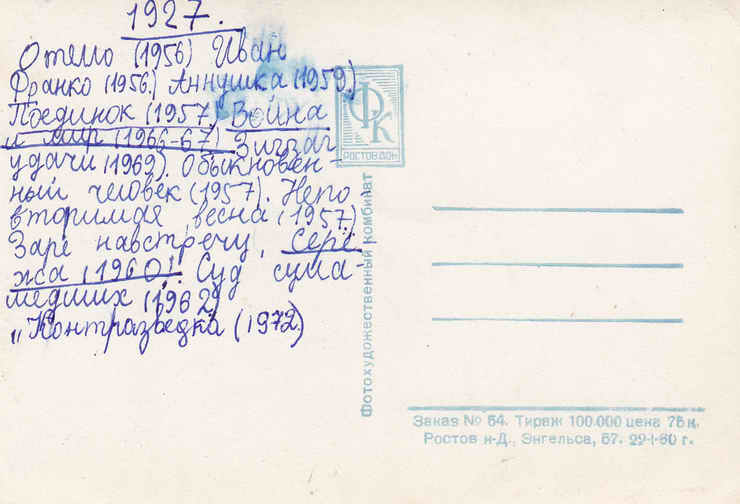 1927.
Отелло (1956) Иван
Франко (1956.) Аннушка (1959.)
Поединок (1957, Война
и мир (1966-67) Зигзаг
удачи (1969). Обыкновен-
ный человек (1957). Непо
вторимая весна (1957)
Заре навстречу, Серё
жа (1960). Суд сума-
медших (1962)
„Контрразведка (1972.)
ФК
РОСТОВ ДОН
Фотохудожественный комбинат
Заказ № 54. Тираж 100.000 цена 75 к.
Ростов н-Д., Энгельса, 57. 29-I-60 г.